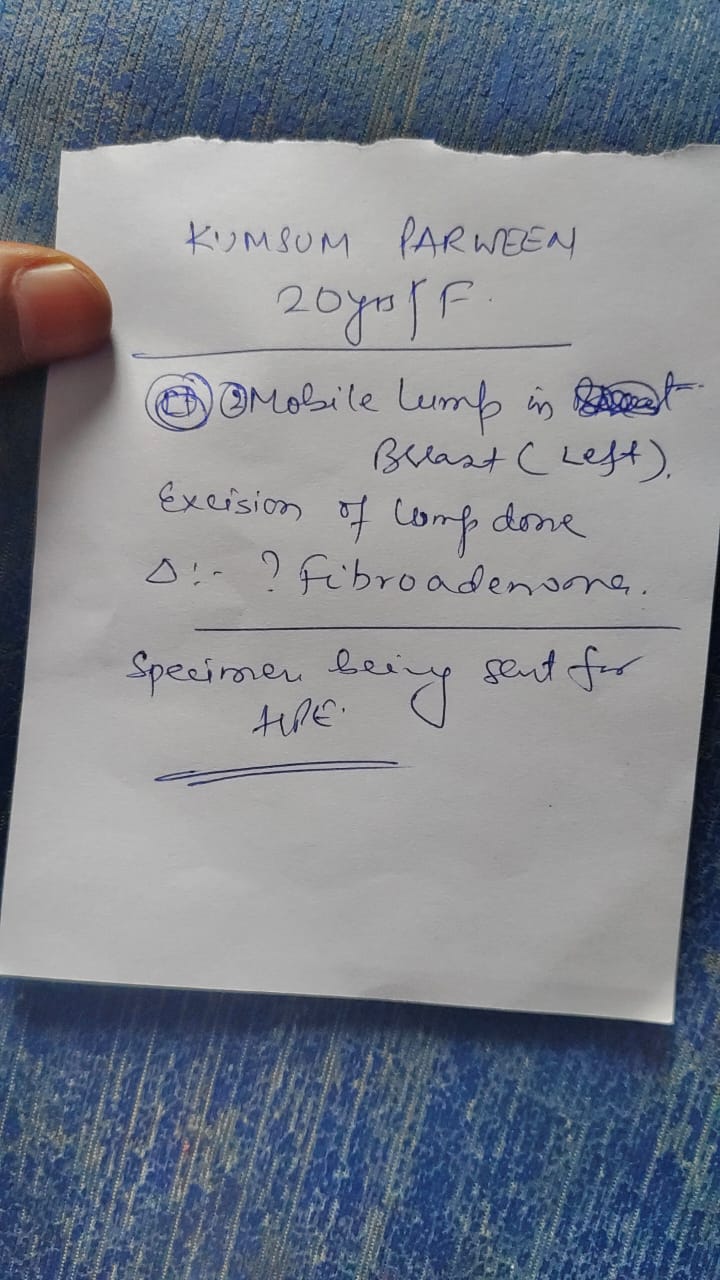 KUMSUM PARWEEN
20yrs/F.
② Mobile lump in
Breast (Left).
Excision of lump done
Δ:- ? fibroadenoma.
Specimen being sent for
HPE.